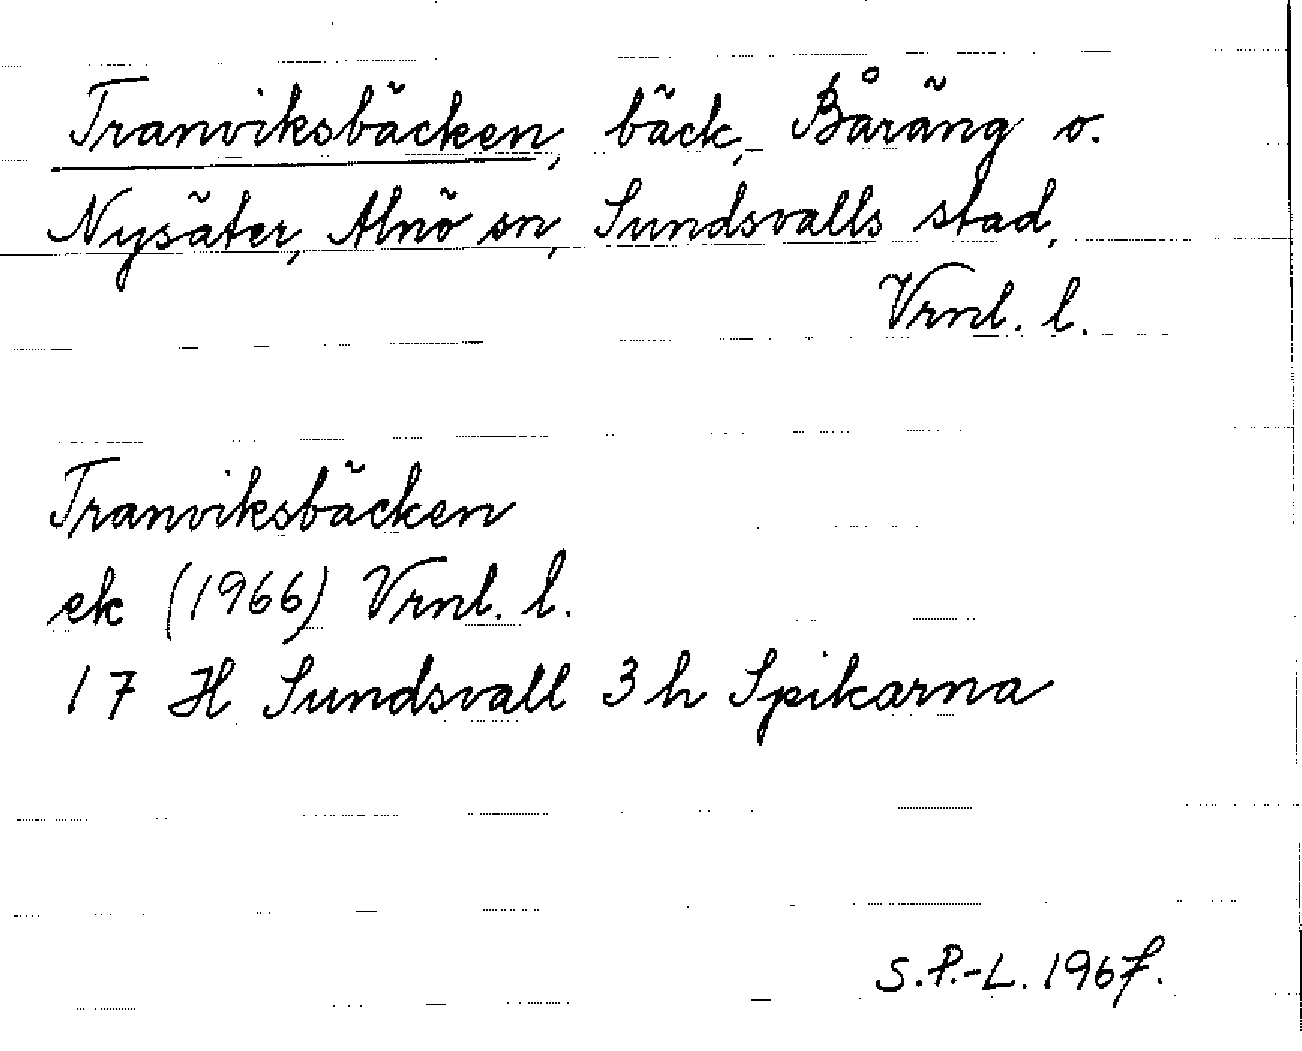 Tranviksbäcken, bäck, Båräng o.
Nysäter, Alnö sn, Sundsvalls stad,
Vrnl. l.
Tranviksbäcken
ek (1966) Vrnl. l.
17 H Sundsvall 3 h Spikarna
S.P.-L. 1967.